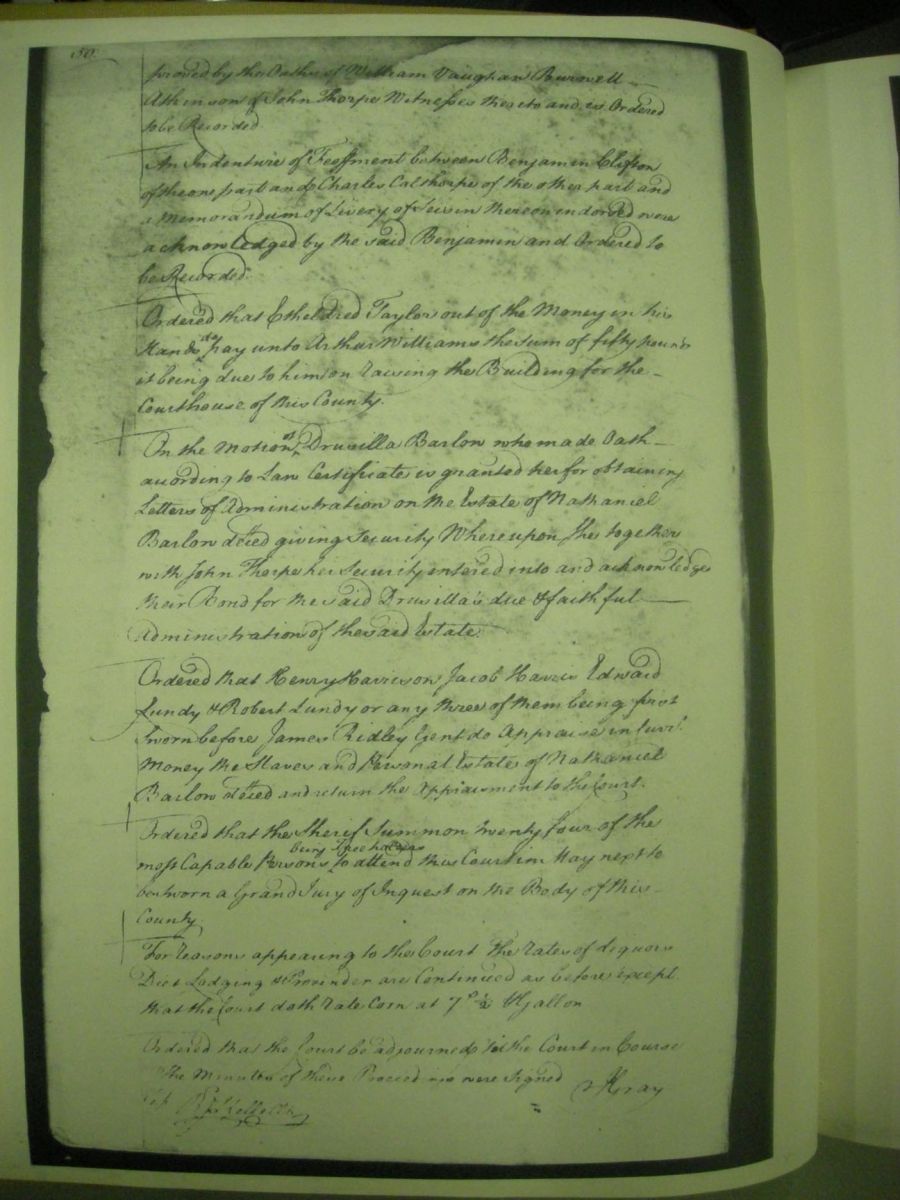 150
proved by the Oaths of William Vaughan Burwell
Atkinson & John Thorpe Witnesses thereto and is Ordered
to be Recorded
An Indenture of Feoffment between Benjamin Clifton
of the one part and Charles Calthorpe of the other part and
a Memorandum of Livery of Seisin thereon indorsed were
acknowledged by the said Benjamin and Ordered to
be Recorded.
Ordered that Etheldred Taylor out of the Money in his
Hands do pay unto Arthur Williams the sum of fifty pounds
it being due to him on raising the Building for the
Courthouse of this County.
On the Motion of Drusilla Barlow who made Oath
according to Law Certificate is granted her for obtaining
Letters of Administration on the Estate of Nathaniel
Barlow deced giving Security Whereupon She together
with John Thorpe her Security entered into and acknowledged
their Bond for the said Drusilla's due & faithful
Administration of the said Estate.
Ordered that Henry Harrison Jacob Harris Edward
Lundy & Robert Lundy or any three of them being first
Sworn before James Ridley Gent do Appraise in Curr.t
Money the Slaves and Personal Estate of Nathaniel
Barlow deced and return the Appraisment to the Court.
Ordered that the Sherif Summon twenty four of the
most Capable Persons being Freeholders to attend this Court in May next to
be sworn a Grand Jury of Inquest on the Body of this
County.
For reasons appearing to the Court the rates of Liquors
Diet Lodging & Provender are Continued as before except
that the Court doth rate Corn at 7d ½ Gallon
Ordered that the Court be adjourned till the Court in Course
The Minutes of these Proceedings were Signed
Gray